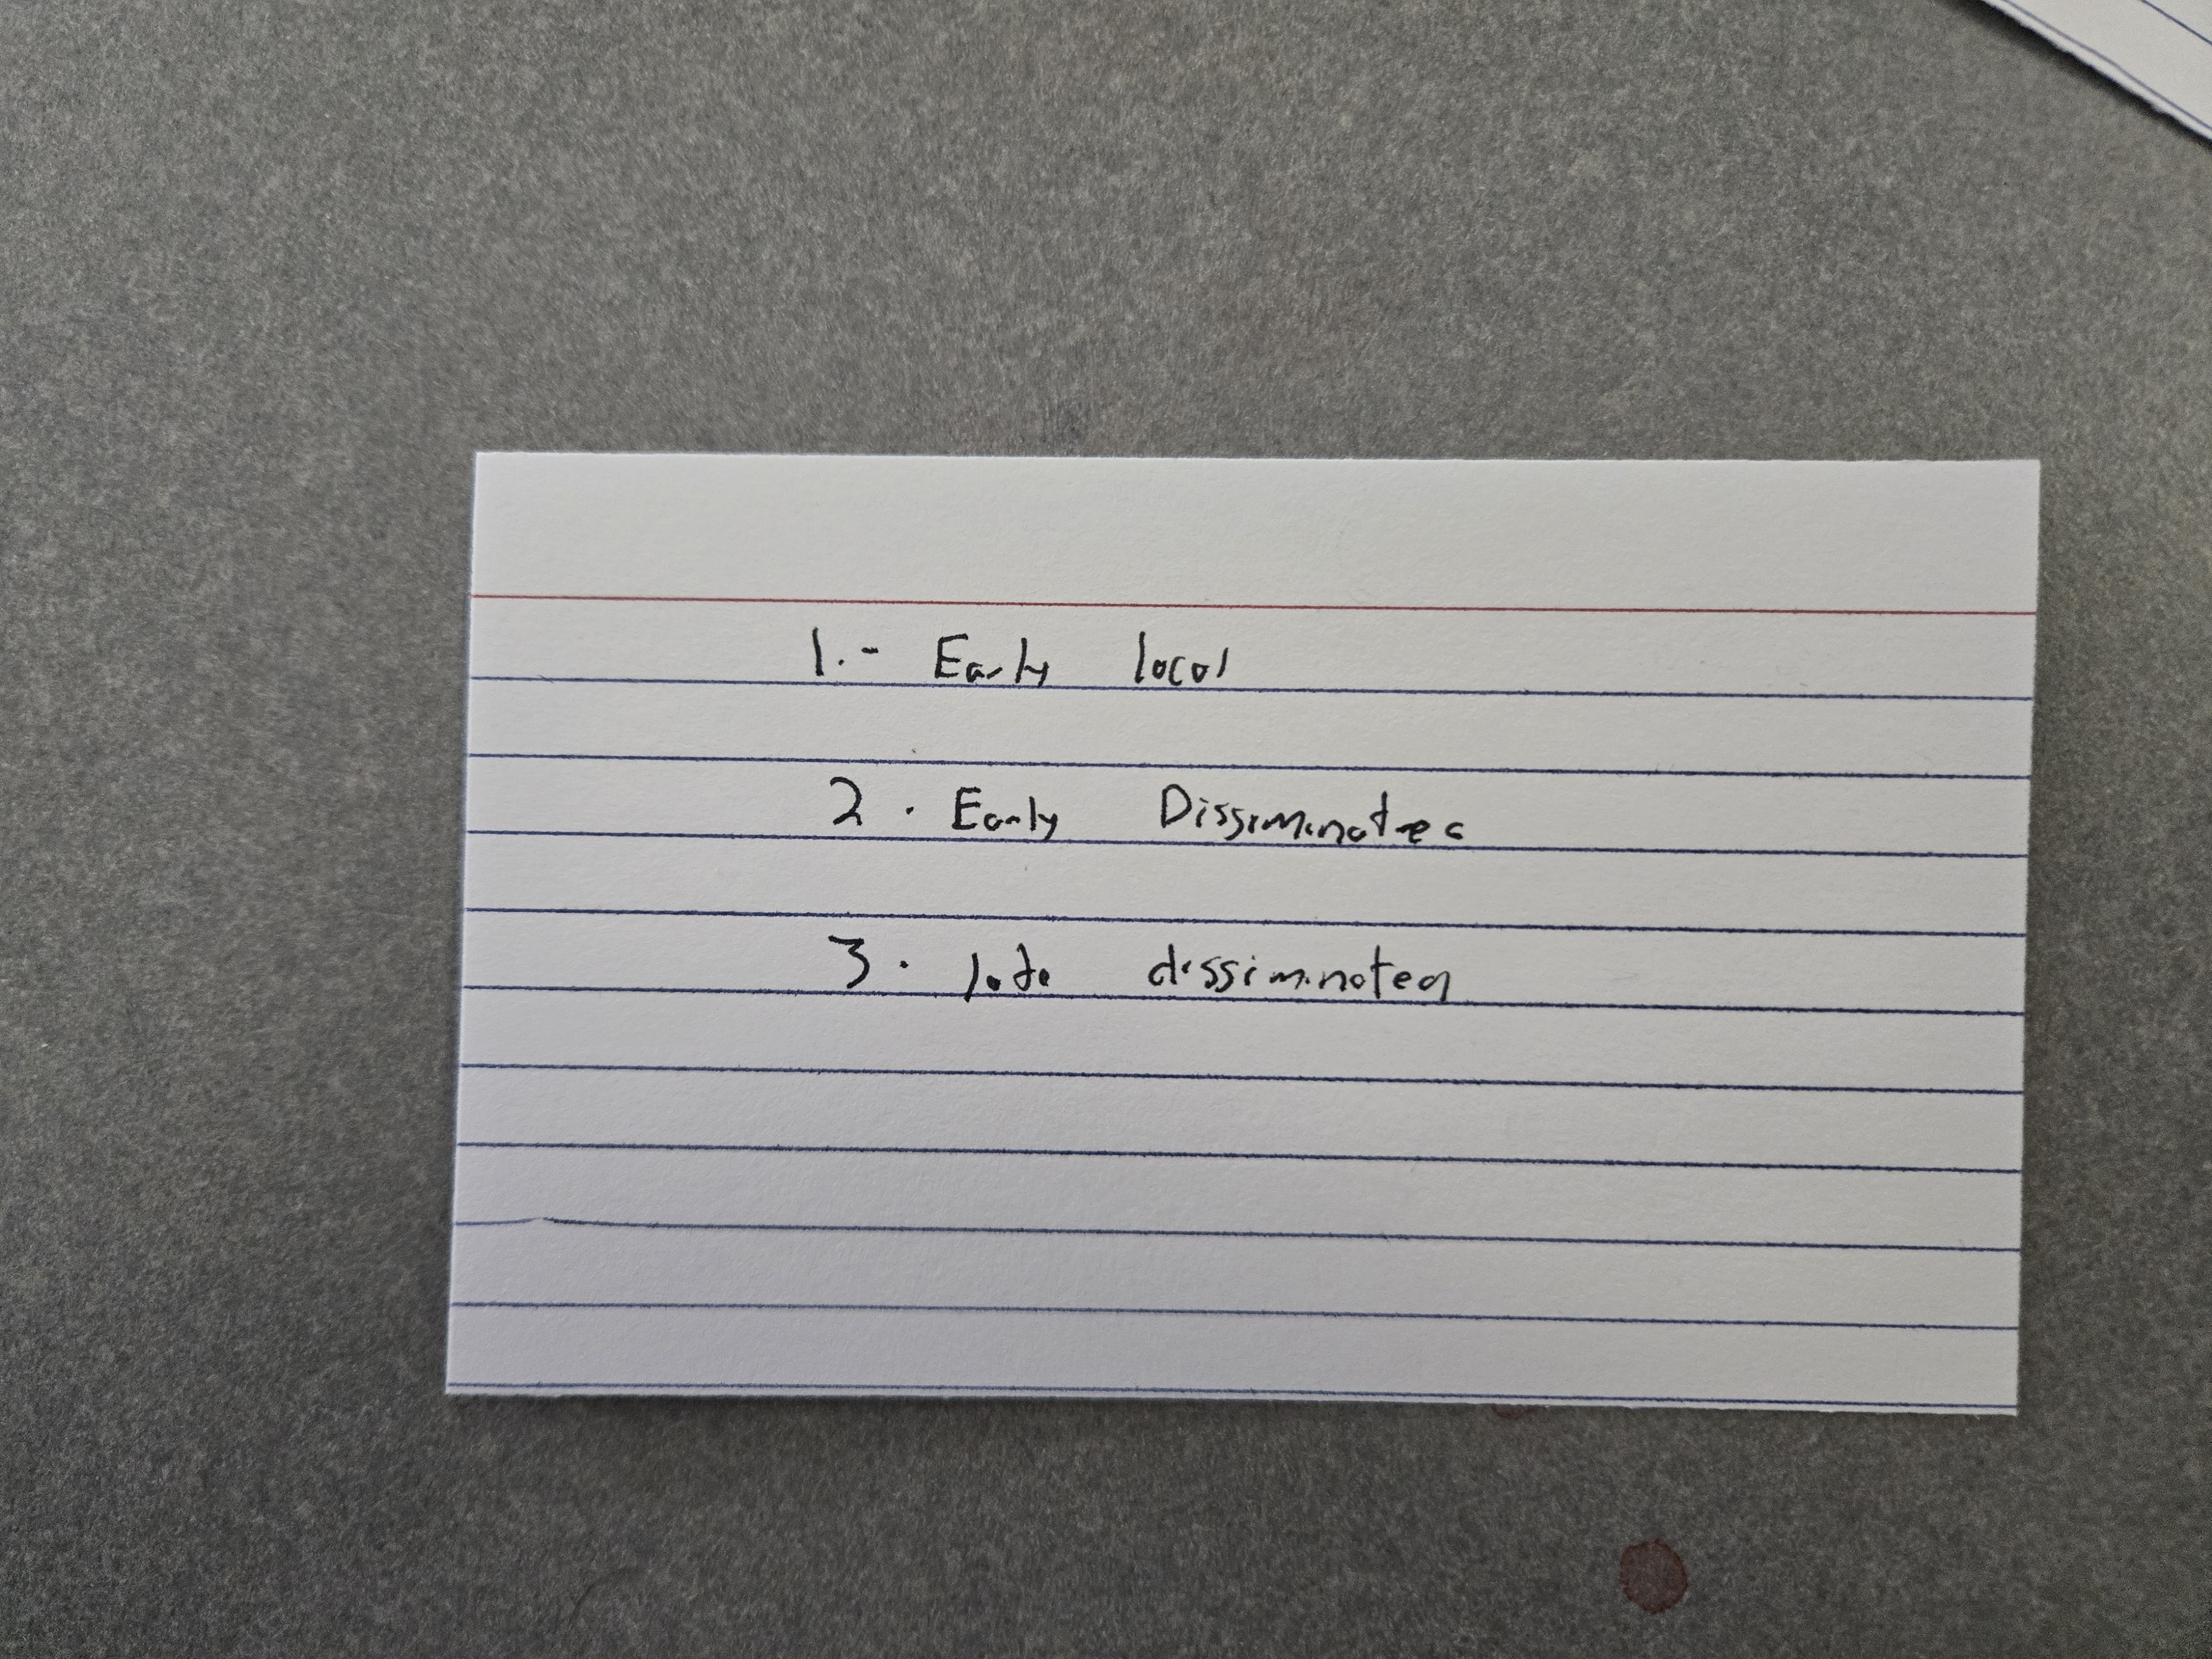 1.- Early local
2. Early Dissiminated
3. late dissiminated